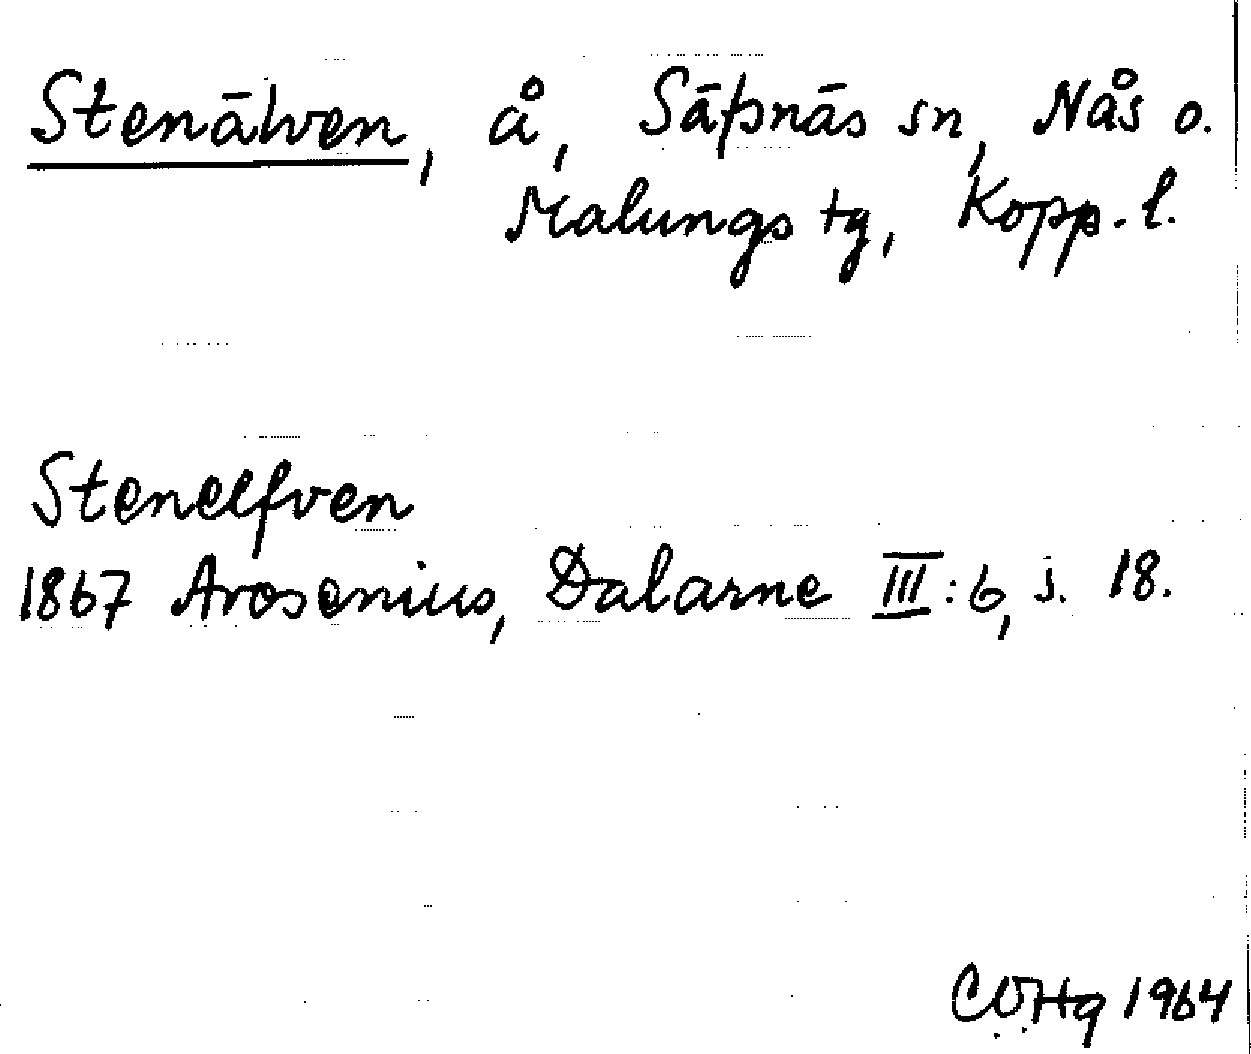 Stenälven, å, Säfsnäs sn, Nås o.
Malungs tg, Kopp. l.
Stenelfven
1867 Arosenius, Dalarne III:6, s. 18.
1964